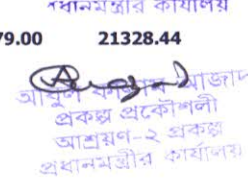 প্রধানমন্ত্রীর কার্যালয়
79.00 21328.44
আবুল কালাম আজাদ
প্রকল্প প্রকৌশলী
আশ্রয়ণ-২ প্রকল্প
প্রধানমন্ত্রীর কার্যালয়